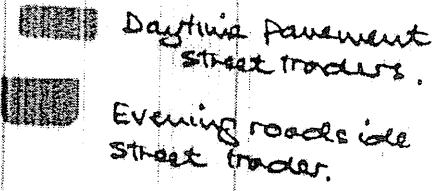 Daytime Pavement
Street traders.
Evening roadside
Street trader.